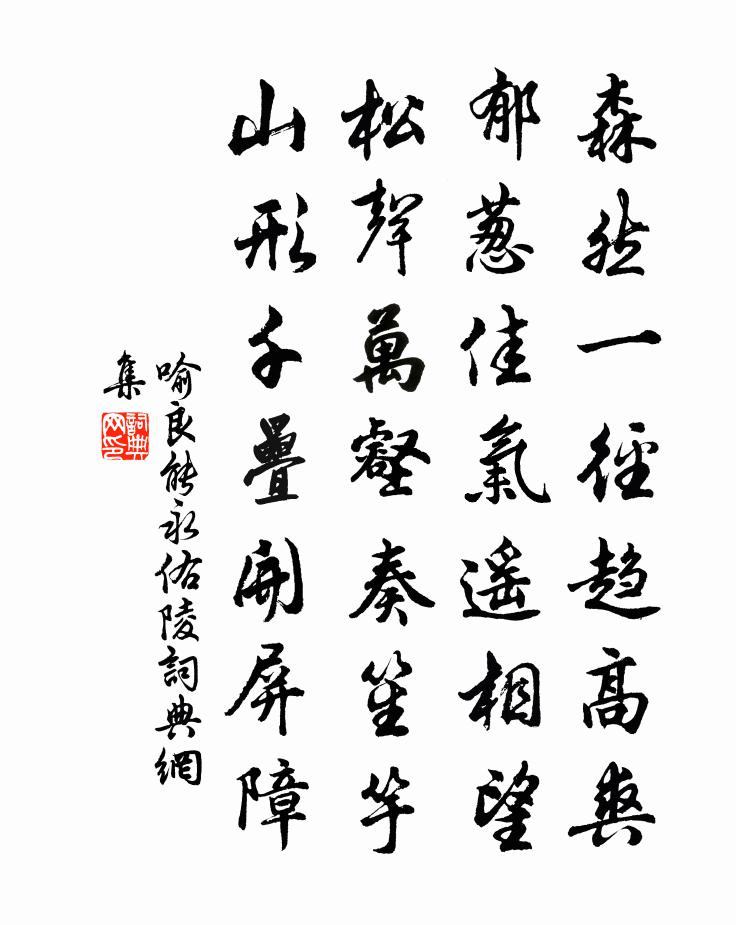 森然一徑趨高爽
郁葱佳氣遥相望
松聲萬壑奏笙竽
山形千疊開屏障
喻良能永佑陵詞典網
集
詞典
网印